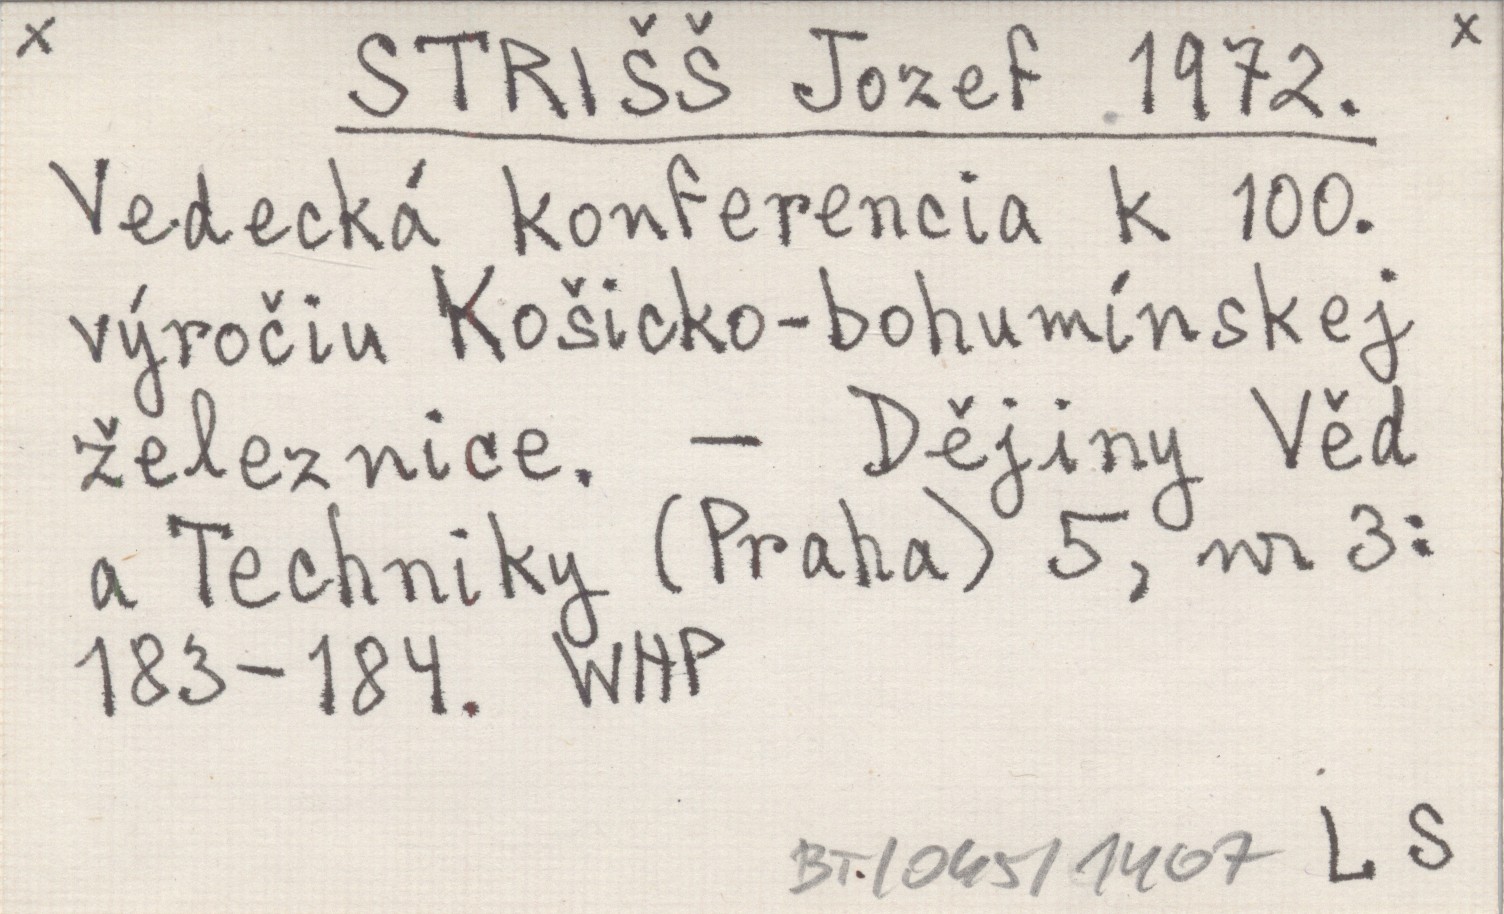 x STRIŠŠ Jozef 1972. x
Vedecká konferencia k 100.
výročiu Košicko-bohumínskej
železnice. – Dějiny Věd
a Techniky (Praha) 5, nr 3:
183-184. WHP
L S
BT./045/1407